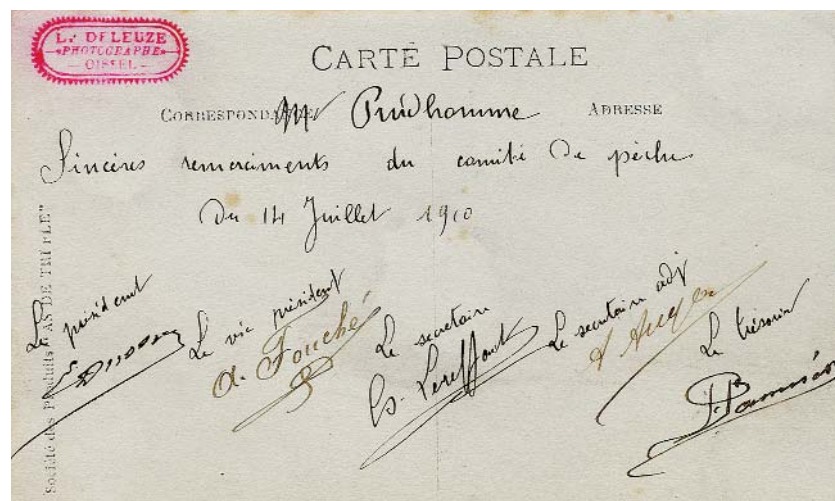 L. DELEUZE
PHOTOGRAPHE
OISSEL
CARTE POSTALE
CORRESPONDANCE ADRESSE
Mr Prudhomme
Sincères remerciments du comité de pêche
Du 14 Juillet 1910
Le président
Le vice président
A. Fouché
Le secrétaire
Le secrétaire adjt
A Auger
Le trésorier
Société des Produits "AS DE TRÈFLE"